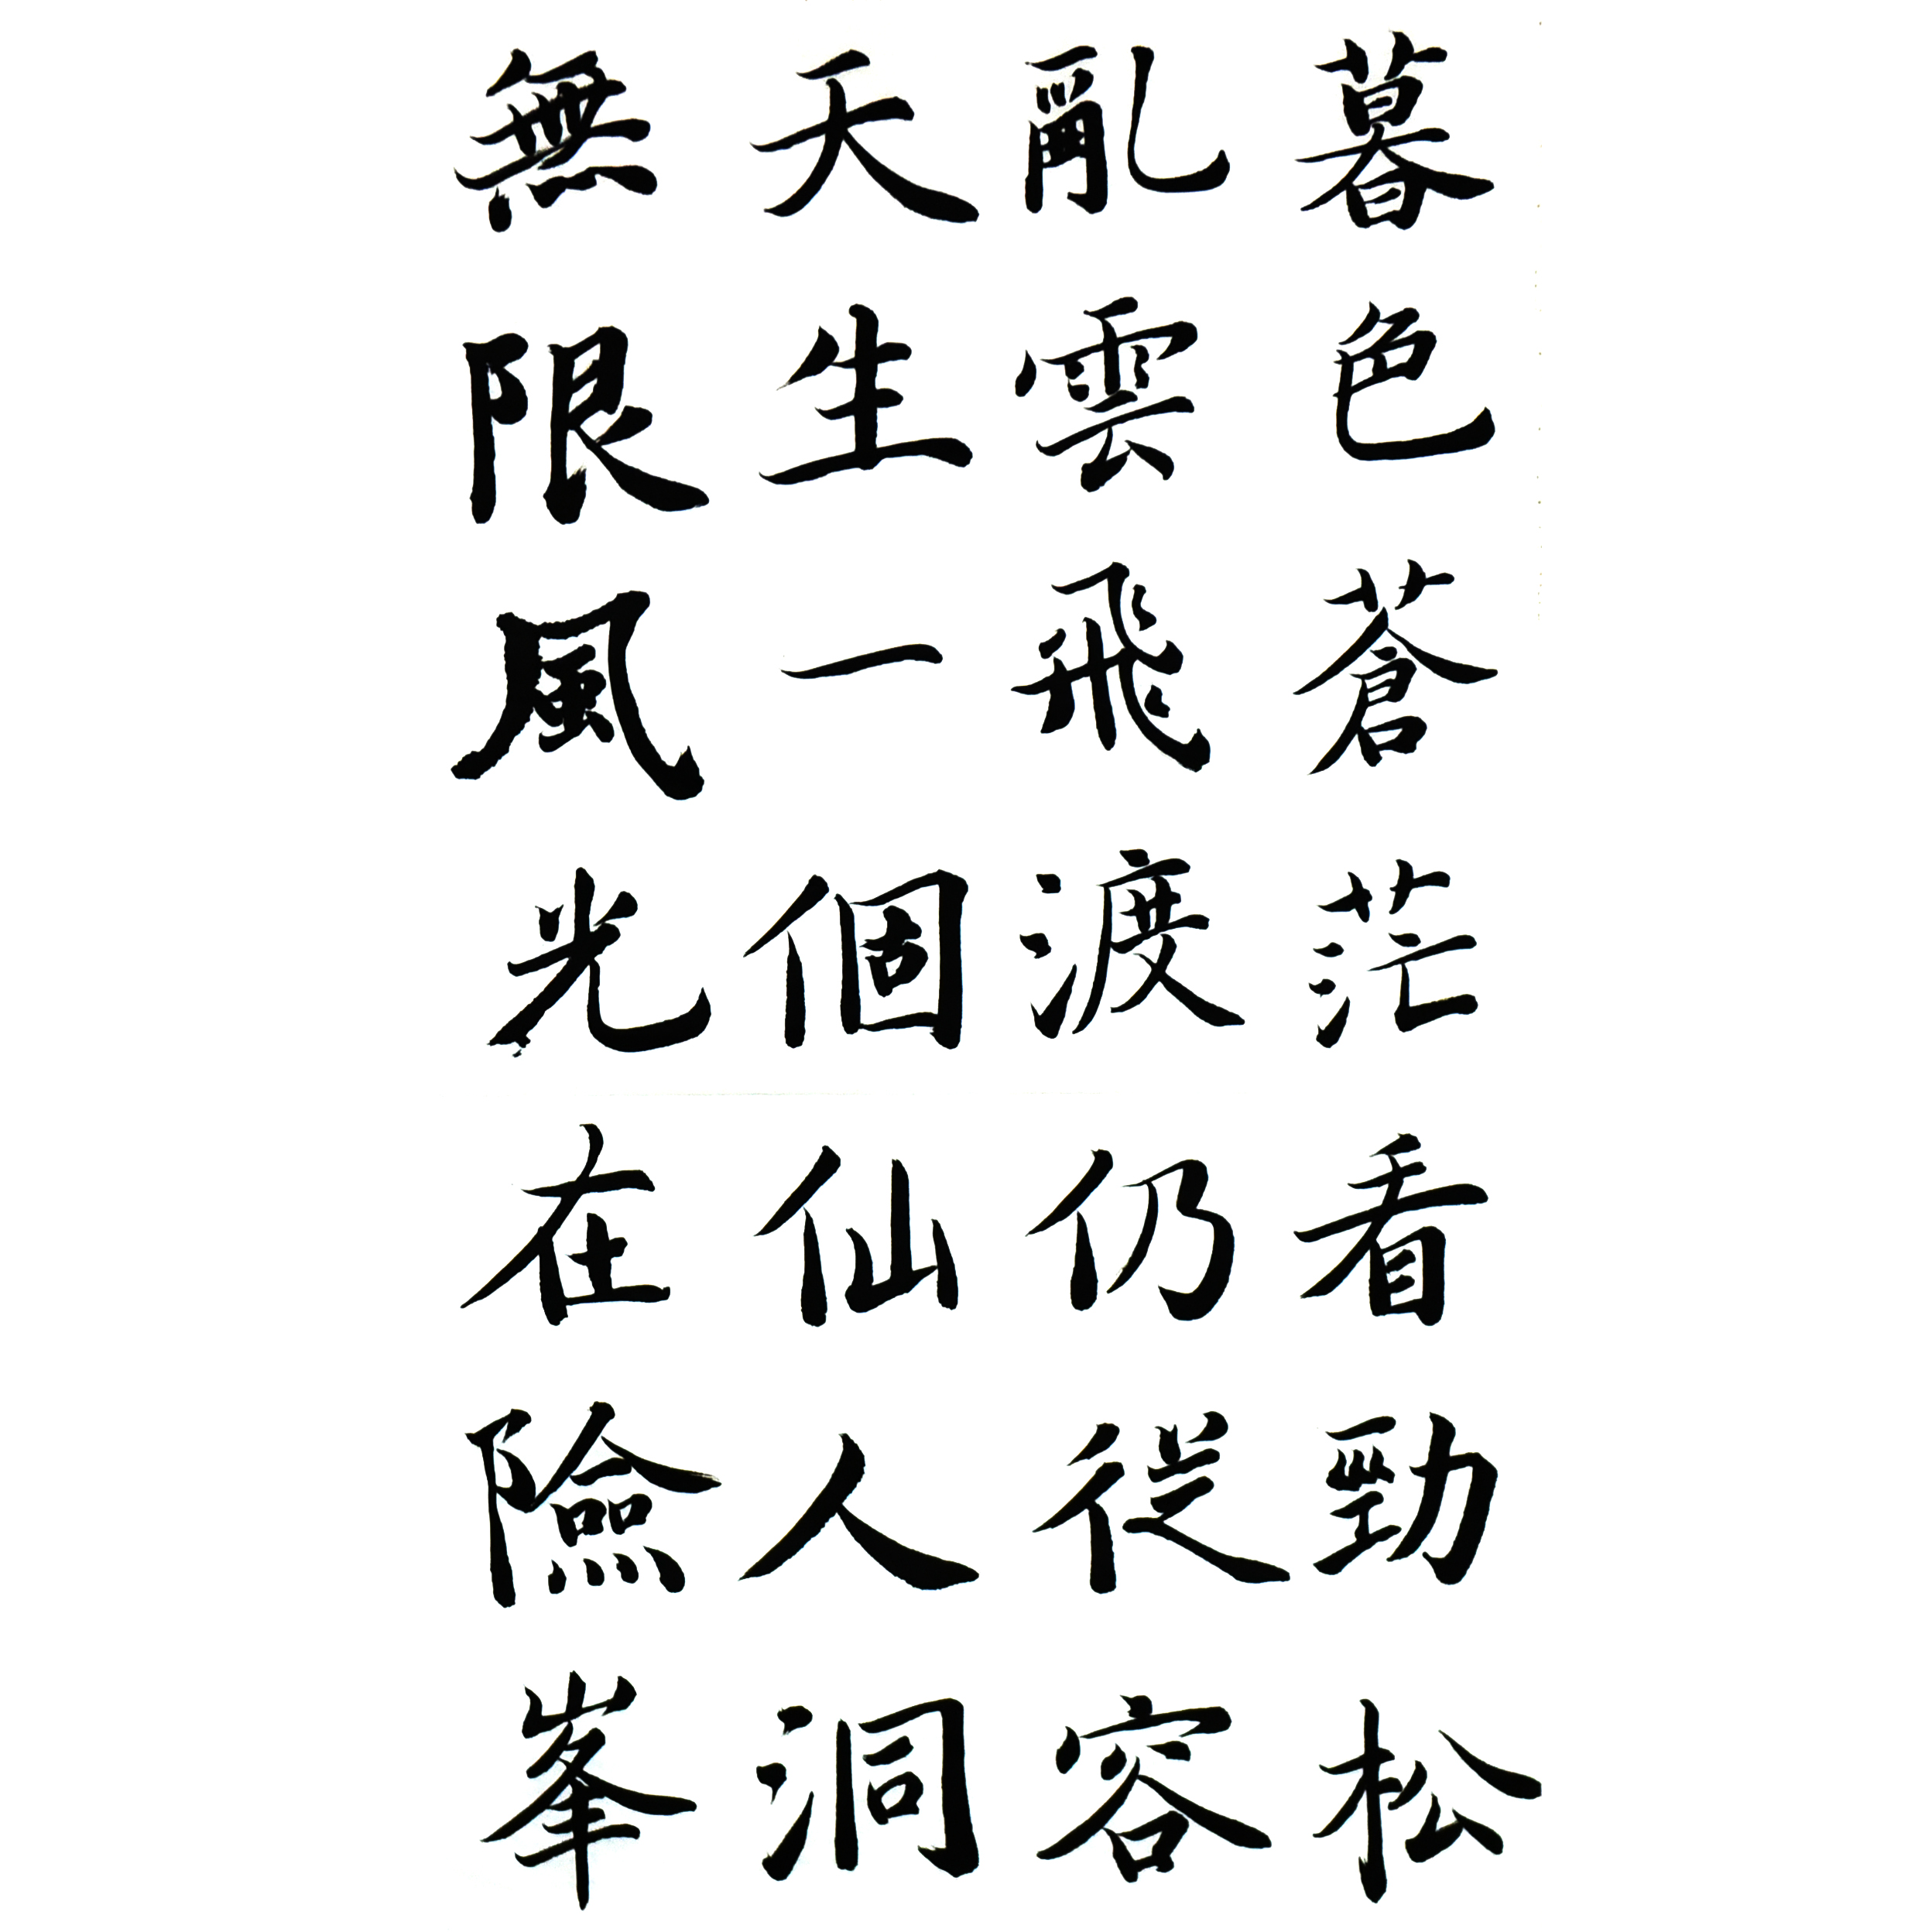 暮色蒼茫看勁松
亂雲飛渡仍從容
天生一個仙人洞
無限風光在險峯